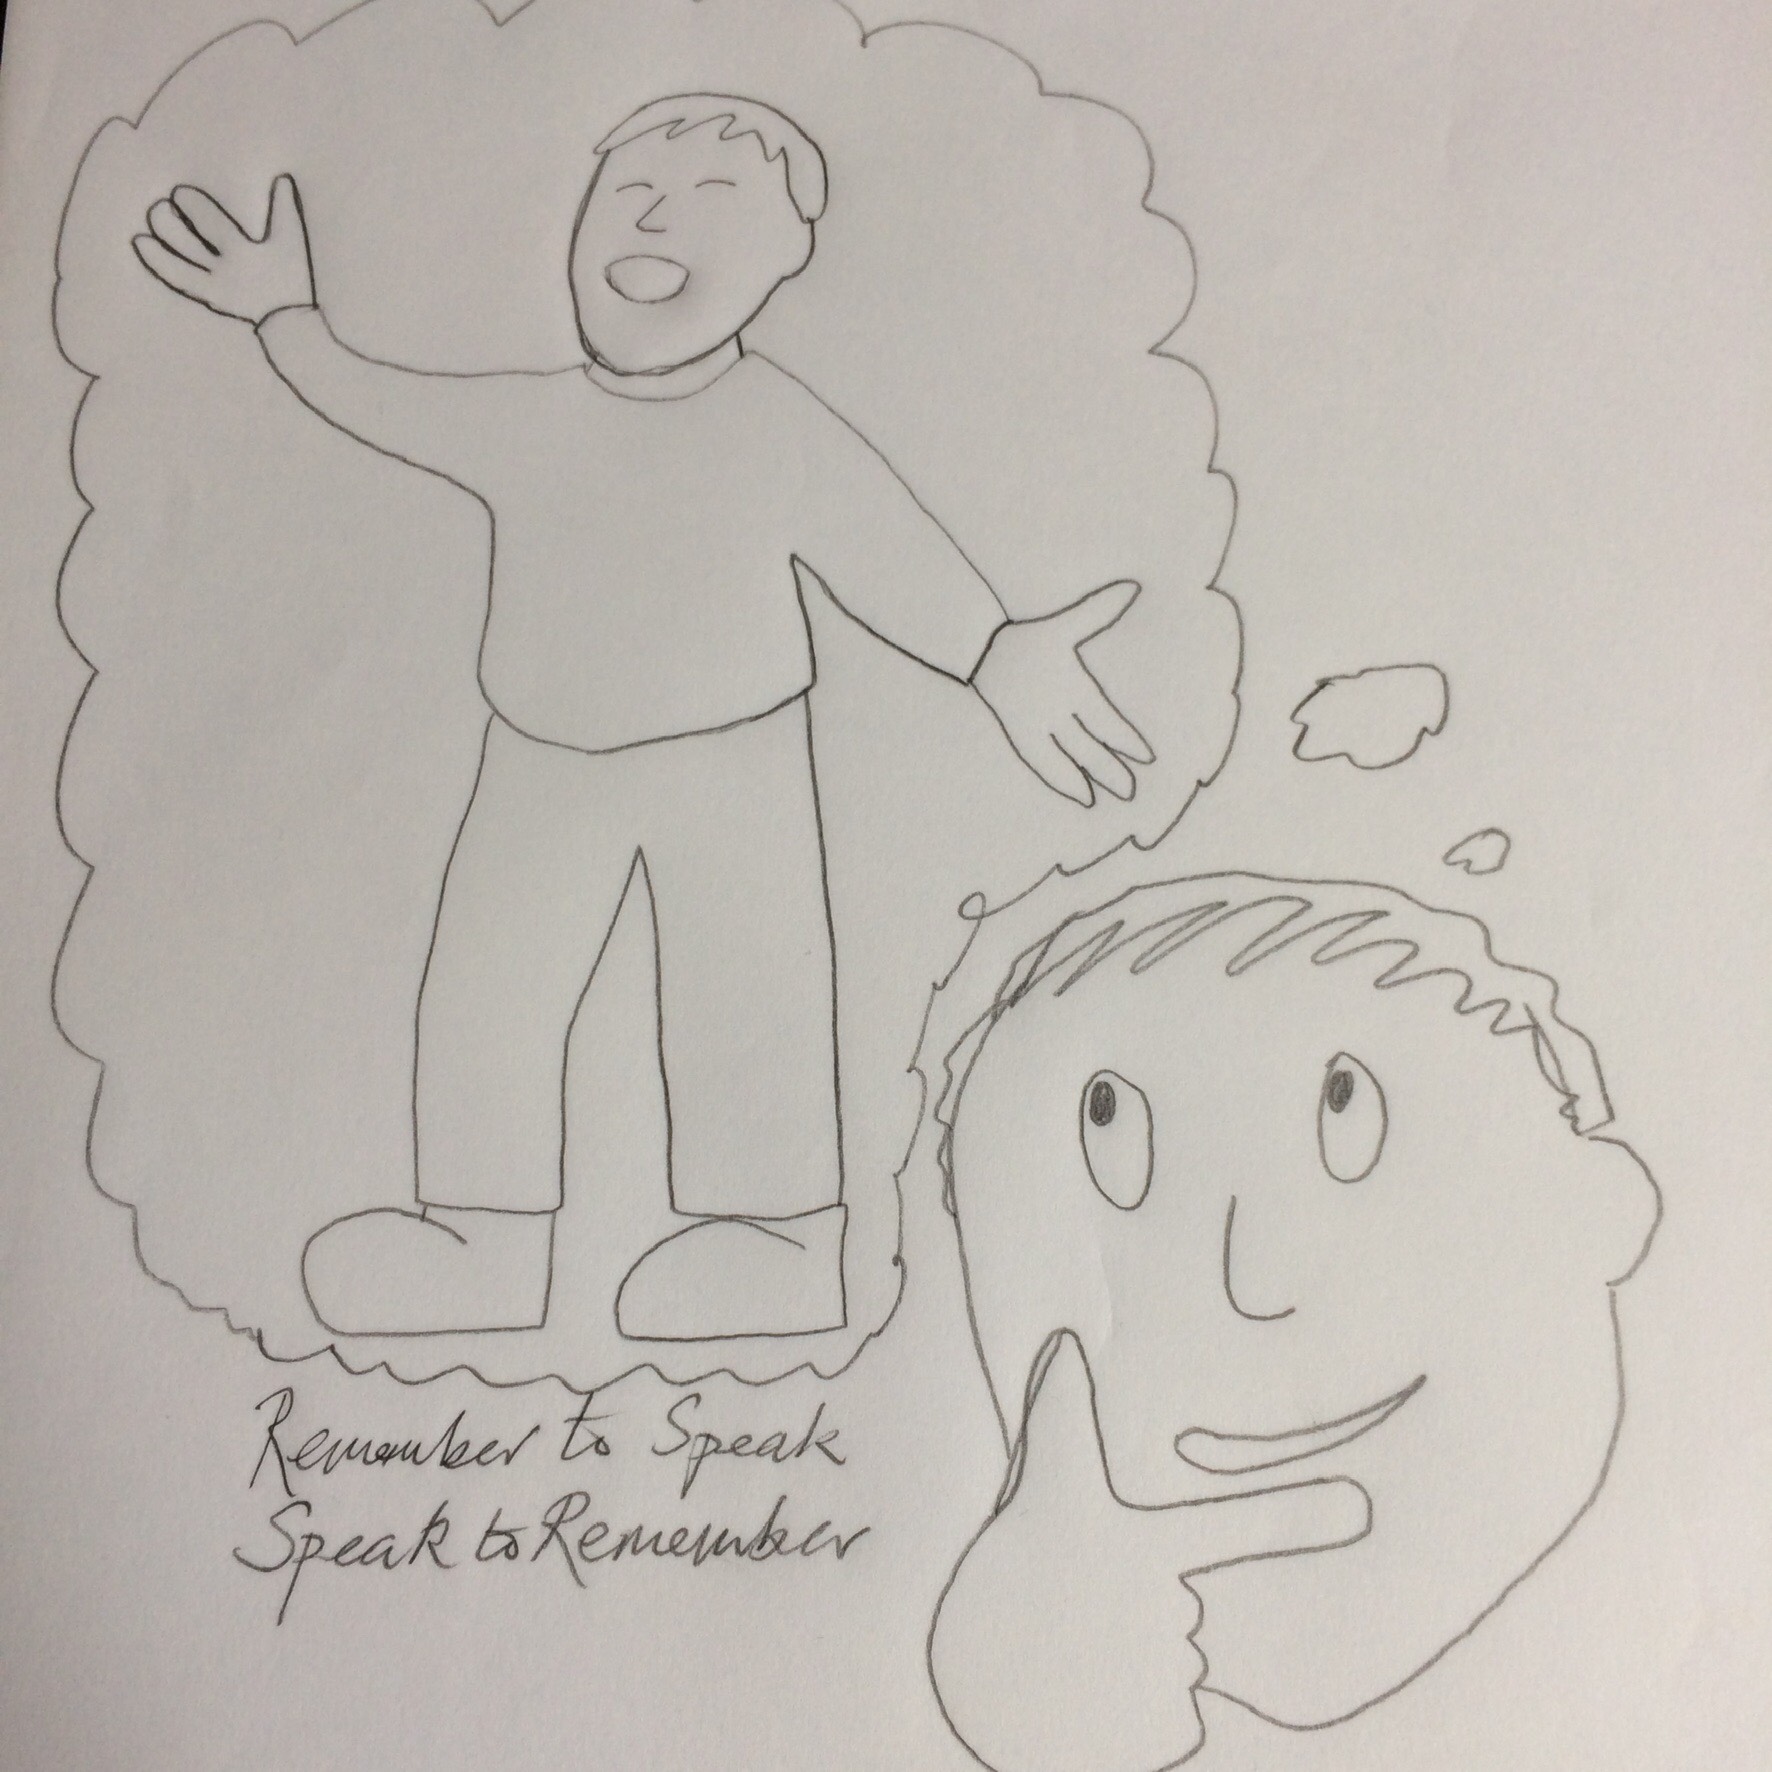 Remember to Speak
Speak to Remember